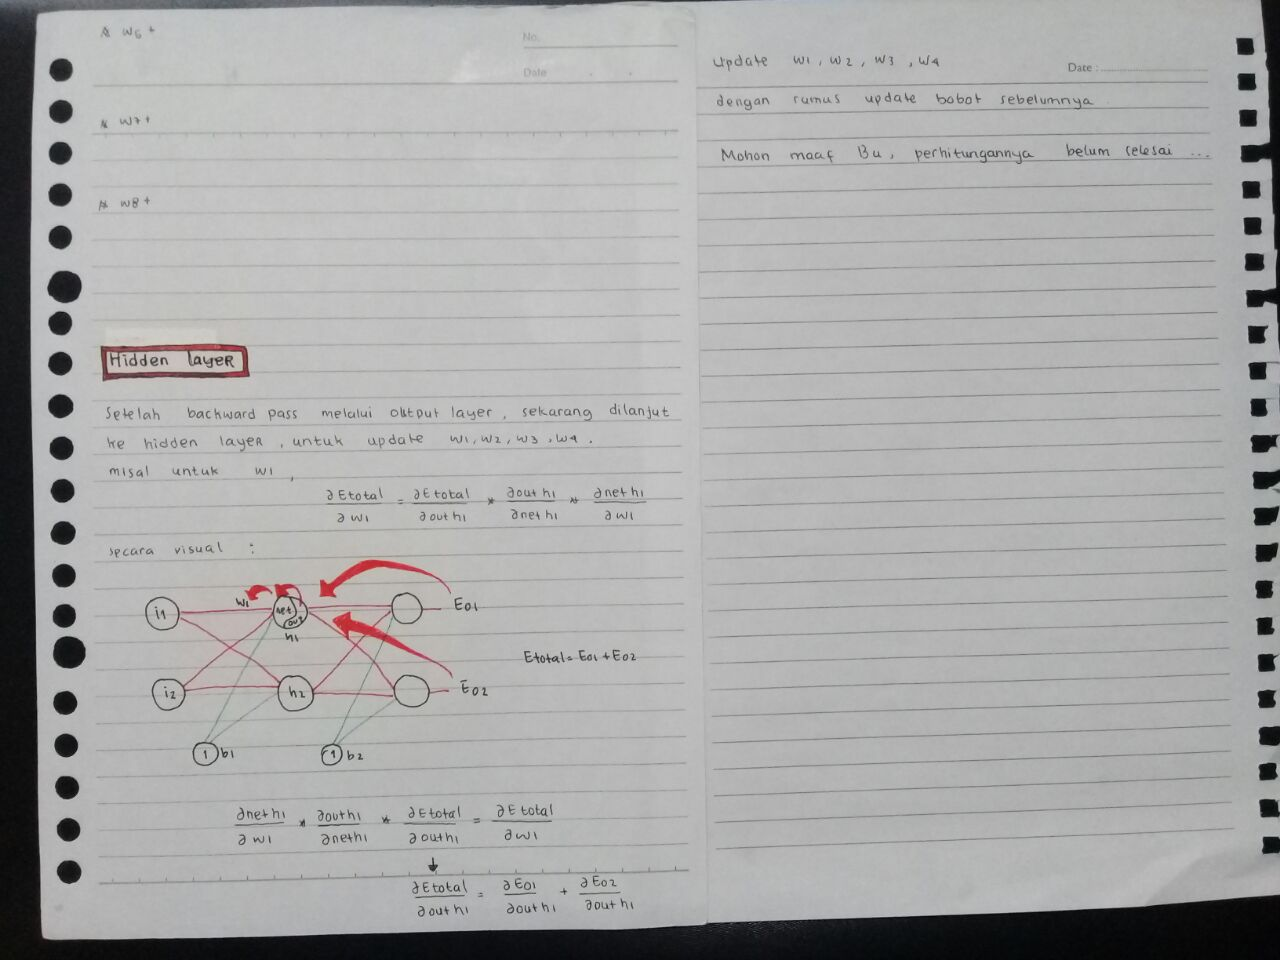 * w6+
No.
Date
* w7+
* w8+
Hidden layer
Setelah backward pass melalui output layer, sekarang dilanjut
ke hidden layer, untuk update w1, w2, w3, w4.
misal untuk w1,
∂Etotal/∂w1 = ∂Etotal/∂out h1 * ∂out h1/∂net h1 * ∂net h1/∂w1
secara visual :
w1
i1 net out h1 E01
Etotal = E01 + E02
i2 h2 E02
1 b1 1 b2
∂net h1/∂w1 * ∂out h1/∂net h1 * ∂Etotal/∂out h1 = ∂Etotal/∂w1
↓
∂Etotal/∂out h1 = ∂E01/∂out h1 + ∂E02/∂out h1
Update w1, w2, w3, w4
Date :
dengan rumus update bobot sebelumnya.
Mohon maaf Bu, perhitungannya belum selesai ...